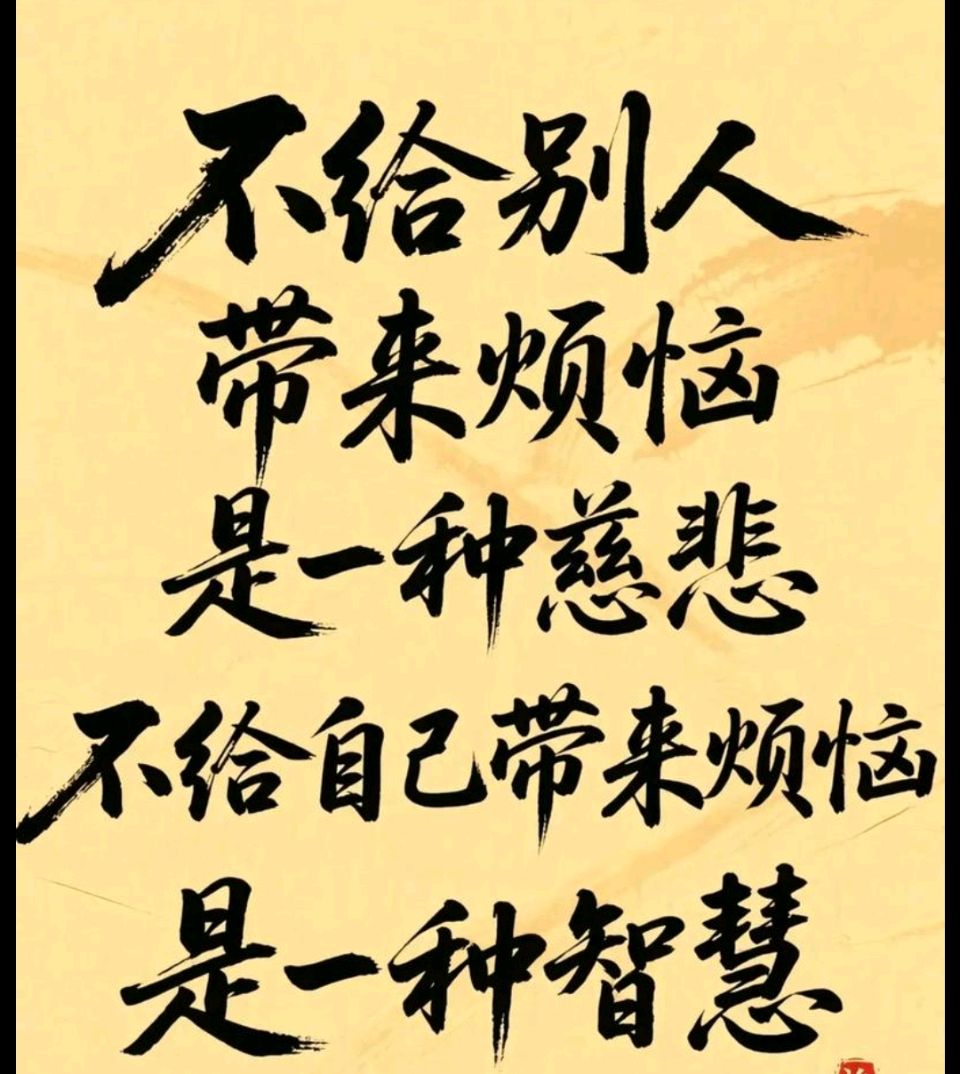 不给别人
带来烦恼
是一种慈悲
不给自己带来烦恼
是一种智慧